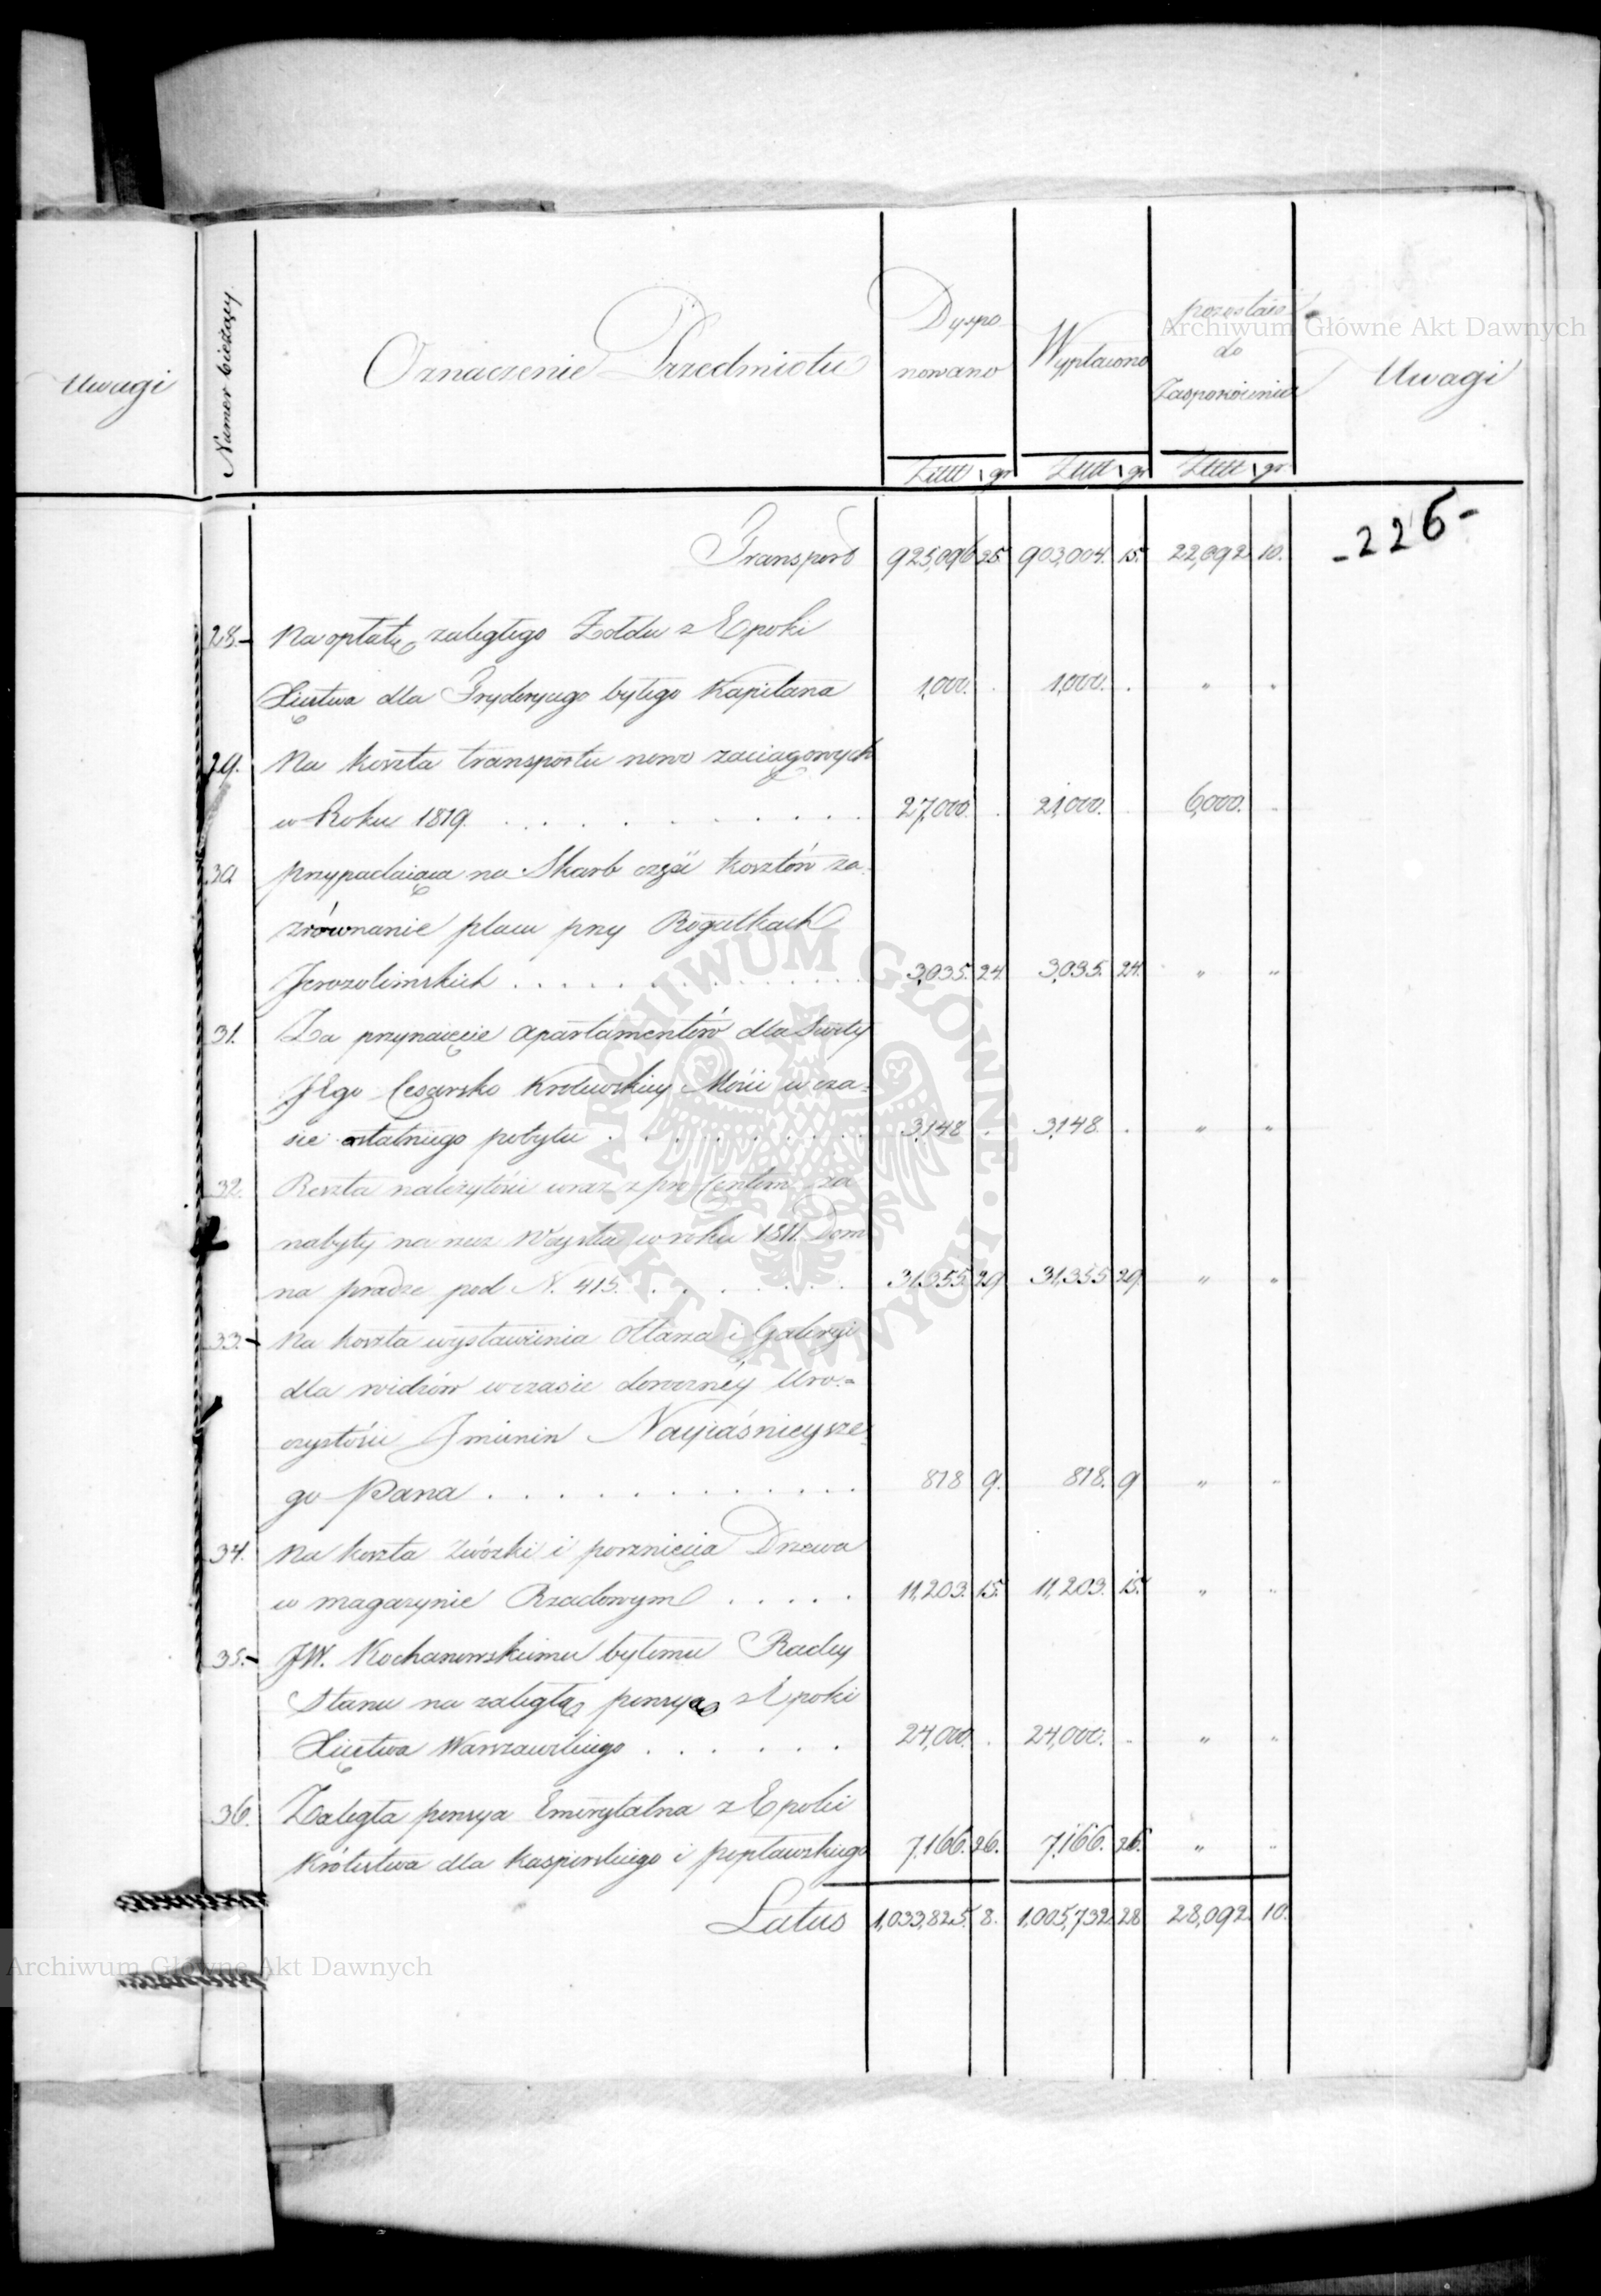 Uwagi
Numer bieżący
Oznaczenie Przedmiotu
Dyspo
nowano
Wypłacono
pozostaie
do
Zaspokoienia
Uwagi
Złtt gr Złtt gr Złtt gr
-226-
Transport 925,096 25. 903,004. 15. 22,092 10.
28. Na opłatę zaległego Żołdu z Epoki
Xięstwa dla Fryderycego byłego Kapitana 1,000. . 1,000. . " "
29. Na koszta transportu nowo zaciągowych
w Roku 1819. 27,000. . 21,000. . 6,000. "
30 przypadaiąca na Skarb część kosztów za
zrównanie placu przy Rogatkach
Jerozolimskich 3,035. 24. 3,035. 24. " "
31. Za przynaięcie apartamentów dla Suity
JEgo Cesarsko Królewskiey Mości w cza=
sie ostatniego pobytu 3,148 . 3,148. . " "
32. Reszta należytości wraz z pro Centem za
nabyty na rzecz Woyska w roku 1811. Dom
na pradze pod N. 415. 31,355. 29 31,355 29. " "
33. Na koszta wystawienia Ołtarza i Galeryi
dla widzów w czasie doroczney Uro=
czystości Imienin Nayiaśnieysze=
go Pana 818 9. 818. 9 " "
34. Na koszta zwózki i porznięcia Drzewa
w magazynie Rządowym 11,203. 15. 11,203. 15. " "
35. JW. Kochanowskiemu byłemu Radcy
Stanu na zaległą pensyą z Epoki
Xięstwa Warszawskiego 24,000. . 24,000. . " "
36. Zaległa pensya Emerytalna z Epoki
Królestwa dla Kasperskiego i popławskiego 7,166. 26. 7,166. 26. " "
Latus 1,033,825. 8. 1,005,732. 28 28,092 10.
Archiwum Główne Akt Dawnych
ARCHIWUM GŁÓWNE · AKT DAWNYCH ·
Archiwum Główne Akt Dawnych